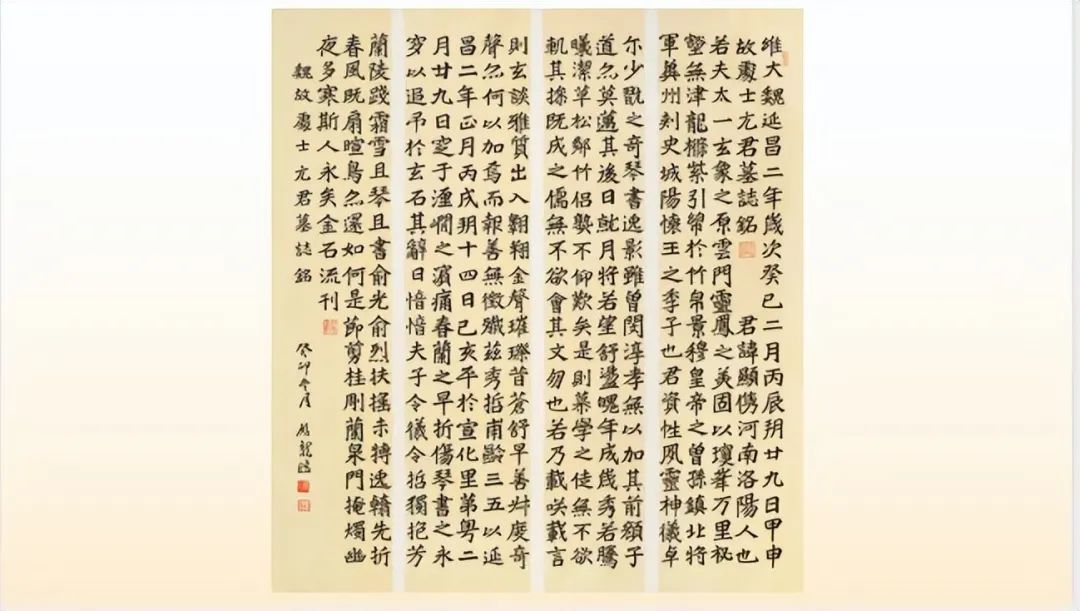 維大魏延昌二年歲次癸巳二月丙辰朔廿九日甲申
故處士元君墓誌銘 君諱顯儁河南洛陽人也
若夫太一玄象之原雲門靈鳳之美固以瓊峯万里秘
壑無津龍櫯紫引絜於竹帛景穆皇帝之曾孫鎮北將
軍冀州刾史城陽懷王之季子也君資性夙靈神儀卓
尒少翫之奇琴書逸影雖曾閔淳孝無以加其前顏子
道亦莫邁其後日就月將若望舒盪魄年成歲秀若騰
曦潔草松鄰竹侶孰不仰歎矣是則慕學之徒無不欲
軌其操既成之儒無不欲會其文勿也若乃載咲載言
則玄談雅質出入翱翔金聲璀璨昔蒼舒早善舛度奇
聲亦何以加焉而報善無徵殲茲秀哲甫齡三五以延
昌二年正月丙戌朔十四日己亥卒於宣化里第粵二
月廿九日窆于瀍澗之濱痛春蘭之早折傷琴書之永
穸以追弔於玄石其辭曰愔愔夫子令儀令哲獨挹芳
蘭陵踐霜雪且琴且書俞光俞烈扶搖未摶逸翰先折
春風既扇暄鳥亦還如何是節剪桂剛蘭泉門掩燭幽
夜多寒斯人永矣金石流刊
魏故處士元君墓誌銘
癸卯冬月